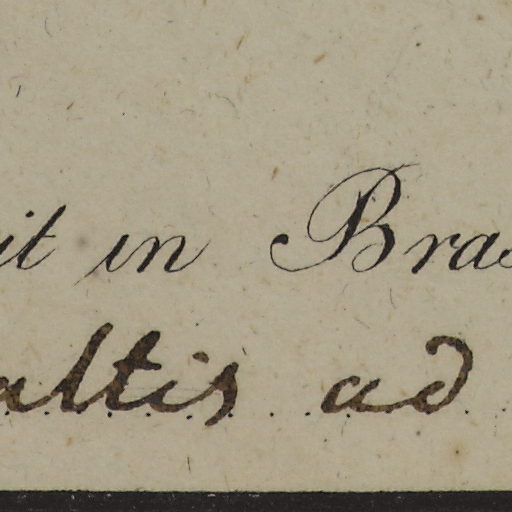 it in Bras
altis ad